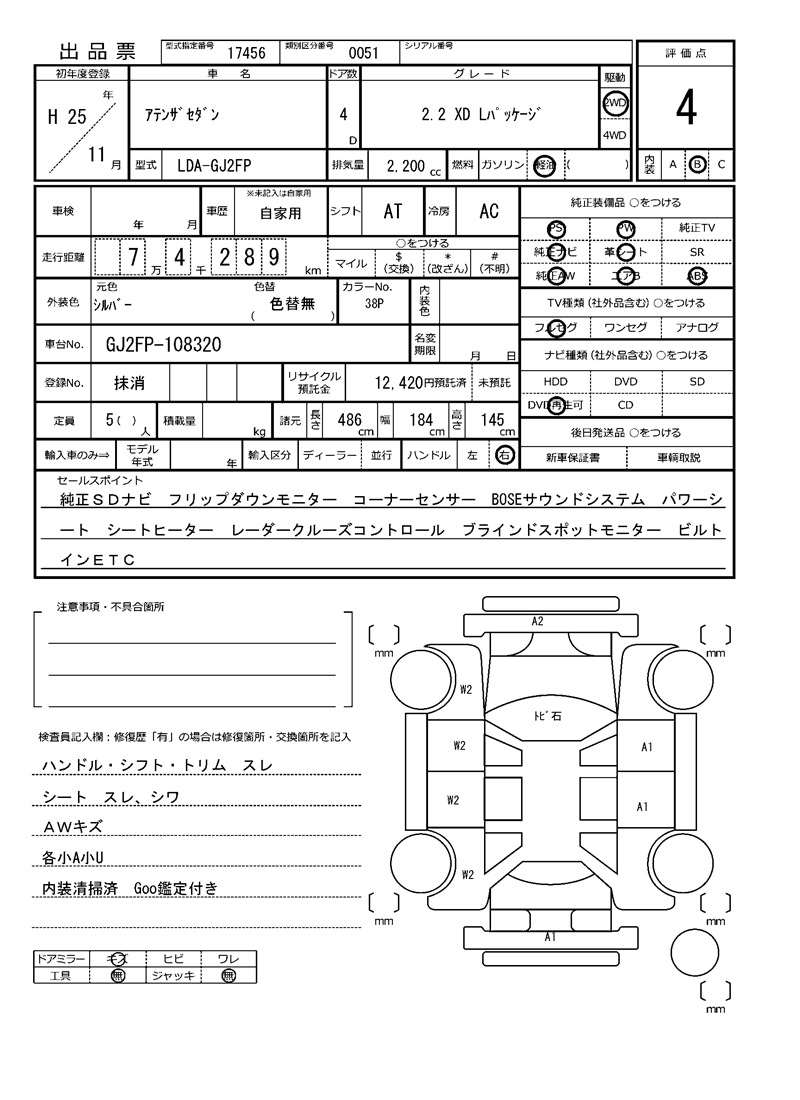 出品票 型式指定番号 17456 類別区分番号 0051 シリアル番号
評価点
4
内装 A B C
初年度登録 車名 ドア数 グレード 駆動
H 25 年 11 月 アテンザセダン 4 D 2.2 XD Lパッケージ 2WD 4WD
型式 LDA-GJ2FP 排気量 2,200 cc 燃料 ガソリン 軽油 ( )
車検 年 月 車歴 ※未記入は自家用 自家用 シフト AT 冷房 AC
走行距離 7 万 4 千 2 8 9 km ○をつける
マイル $(交換) *(改ざん) #(不明)
外装色 元色 シルバー 色替 ( 色替無 ) カラーNo. 38P 内装色
車台No. GJ2FP-108320 名変期限 月 日
登録No. 抹消 リサイクル預託金 12,420円預託済 未預託
定員 5( )人 積載量 kg 諸元 長さ 486 cm 幅 184 cm 高さ 145 cm
輸入車のみ⇒ モデル年式 年 輸入区分 ディーラー 並行 ハンドル 左 右
純正装備品 ○をつける
PS PW 純正TV
純正ナビ 革シート SR
純正AW エアB ABS
TV種類(社外品含む)○をつける
フルセグ ワンセグ アナログ
ナビ種類(社外品含む)○をつける
HDD DVD SD
DVD再生可 CD
後日発送品 ○をつける
新車保証書 車輌取説
セールスポイント
純正SDナビ フリップダウンモニター コーナーセンサー BOSEサウンドシステム パワーシ
ート シートヒーター レーダークルーズコントロール ブラインドスポットモニター ビルト
インETC
注意事項・不具合箇所
検査員記入欄:修復歴「有」の場合は修復箇所・交換箇所を記入
ハンドル・シフト・トリム スレ
シート スレ、シワ
AWキズ
各小A小U
内装清掃済 Goo鑑定付き
ドアミラー キズ ヒビ ワレ
工具 無 ジャッキ 無
A2
mm mm
W2
トビ石
W2 A1
W2 A1
W2
mm mm
A1
mm